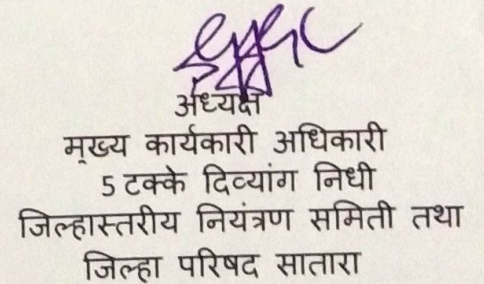 अध्यक्ष
मुख्य कार्यकारी अधिकारी
5 टक्के दिव्यांग निधी
जिल्हास्तरीय नियंत्रण समिती तथा
जिल्हा परिषद सातारा